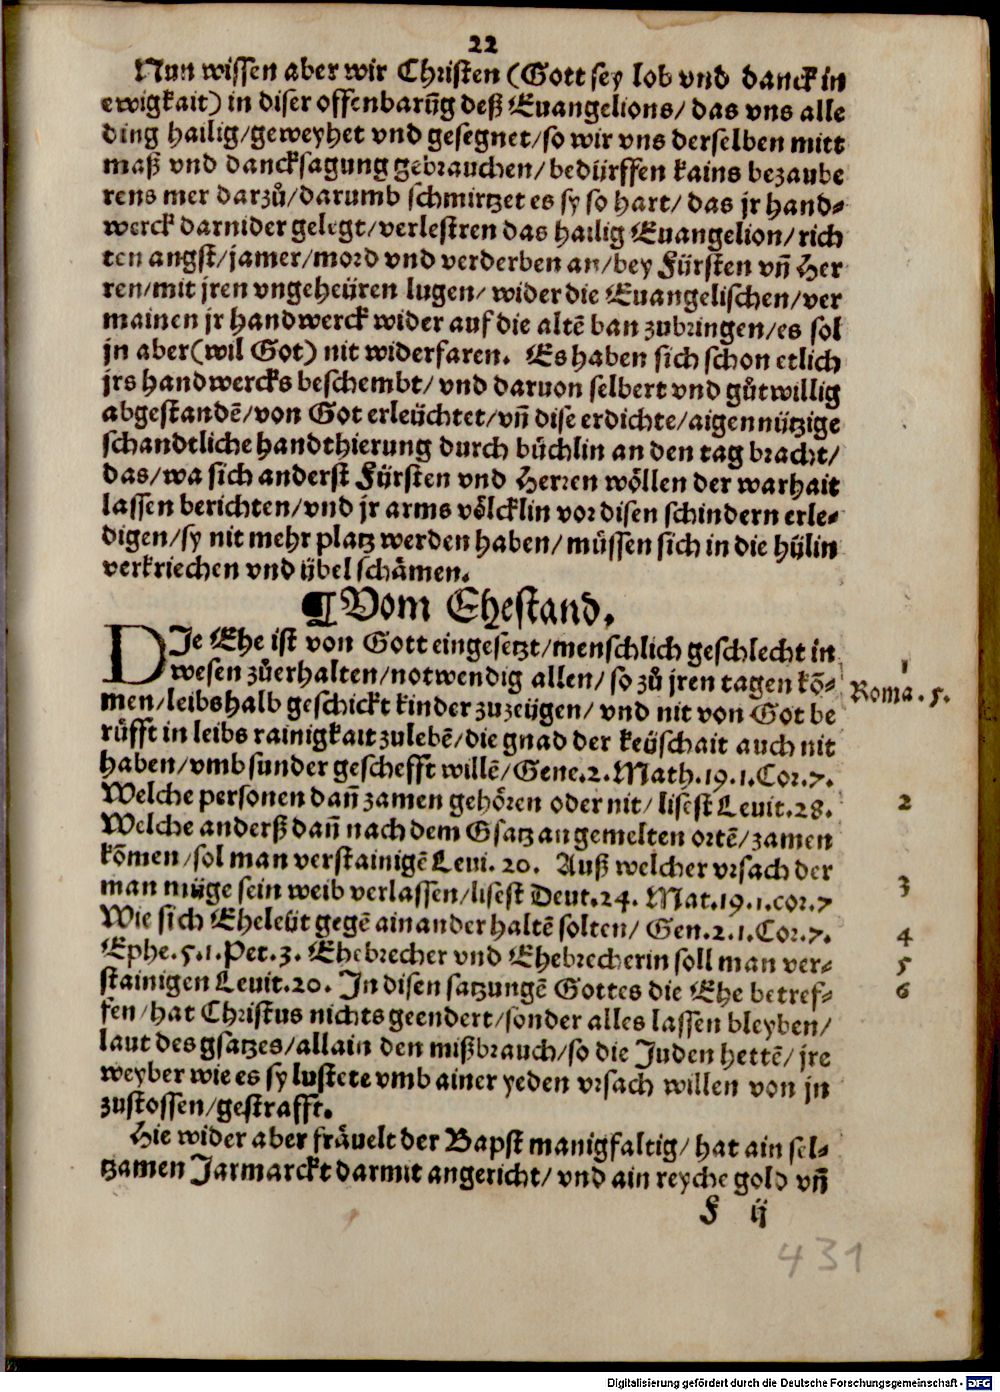 22
Nun wissen aber wir Christen (Gott sey lob vnd danck in
ewigkait) in diser offenbarūg deß Euangelions/ das vns alle
ding hailig/geweyhet vnd gesegnet/so wir vns derselben mitt
maß vnd dancksagung gebrauchen/bedürffen kains bezaube
rens mer darzuͦ/darumb schmirtzet es sy so hart/ das jr hand⸗
werck darnider gelegt/verlestren das hailig Euangelion/rich
ten angst/jamer/mord vnd verderben an/bey Fürsten vñ Her
ren/mit jren vngeheüren lugen/ wider die Euangelischen/ver
mainen jr handwerck wider auf die altē ban zubringen/es sol
jn aber(wil Got) nit widerfaren. Es haben sich schon etlich
jrs handwercks beschembt/ vnd daruon selbert vnd guͦtwillig
abgestandē/von Got erleüchtet/vñ dise erdichte/aigennützige
schandtliche handthierung durch büchlin an den tag bracht/
das/wa sich anderst Fürsten vnd Herren wöllen der warhait
lassen berichten/vnd jr arms völcklin vor disen schindern erle⸗
digen/sy nit mehr platz werden haben/ müssen sich in die hülin
verkriechen vnd übel schämen.
¶Vom Ehestand.
DIe Ehe ist von Gott eingesetzt/menschlich geschlecht in
wesen zuͦerhalten/notwendig allen/ so zuͦ jren tagen kō⸗
men/leibshalb geschickt kinder zuzeügen/ vnd nit von Got be
rüfft in leibs rainigkait zulebē/die gnad der keüschait auch nit
haben/vmb sunder geschefft willē/Gene.2.Math.19.1.Cor.7.
Welche personen dañ zamen gehören oder nit/ lisest Leuit.28.
Welche anderß dañ nach dem Gsatz angemelten ortē/zamen
kōmen/sol man verstainigē Leui. 20. Auß welcher vrsach der
man müge sein weib verlassen/lisest Deut.24. Mat.19.1.cor.7
Wie sich Eheleüt gegē ainander haltē solten/ Gen.2.1.Cor.7.
Ephe.5.1.Pet.3. Ehebrecher vnd Ehebrecherin soll man ver⸗
stainigen Leuit.20. In disen satzungē Gottes die Ehe betref⸗
fen/hat Christus nichts geendert/sonder alles lassen bleyben/
laut des gsatzes/allain den mißbrauch/so die Juden hettē/ jre
weyber wie es sy lustete vmb ainer yeden vrsach willen von jn
zustossen/gestrafft.
Hie wider aber fräuelt der Bapst manigfaltig/ hat ain sel⸗
tzamen Jarmarckt darmit angericht/ vnd ain reyche gold vñ
F ij
1
Roma.5.
2
3
4
5
6
431
Digitalisierung gefördert durch die Deutsche Forschungsgemeinschaft - DFG